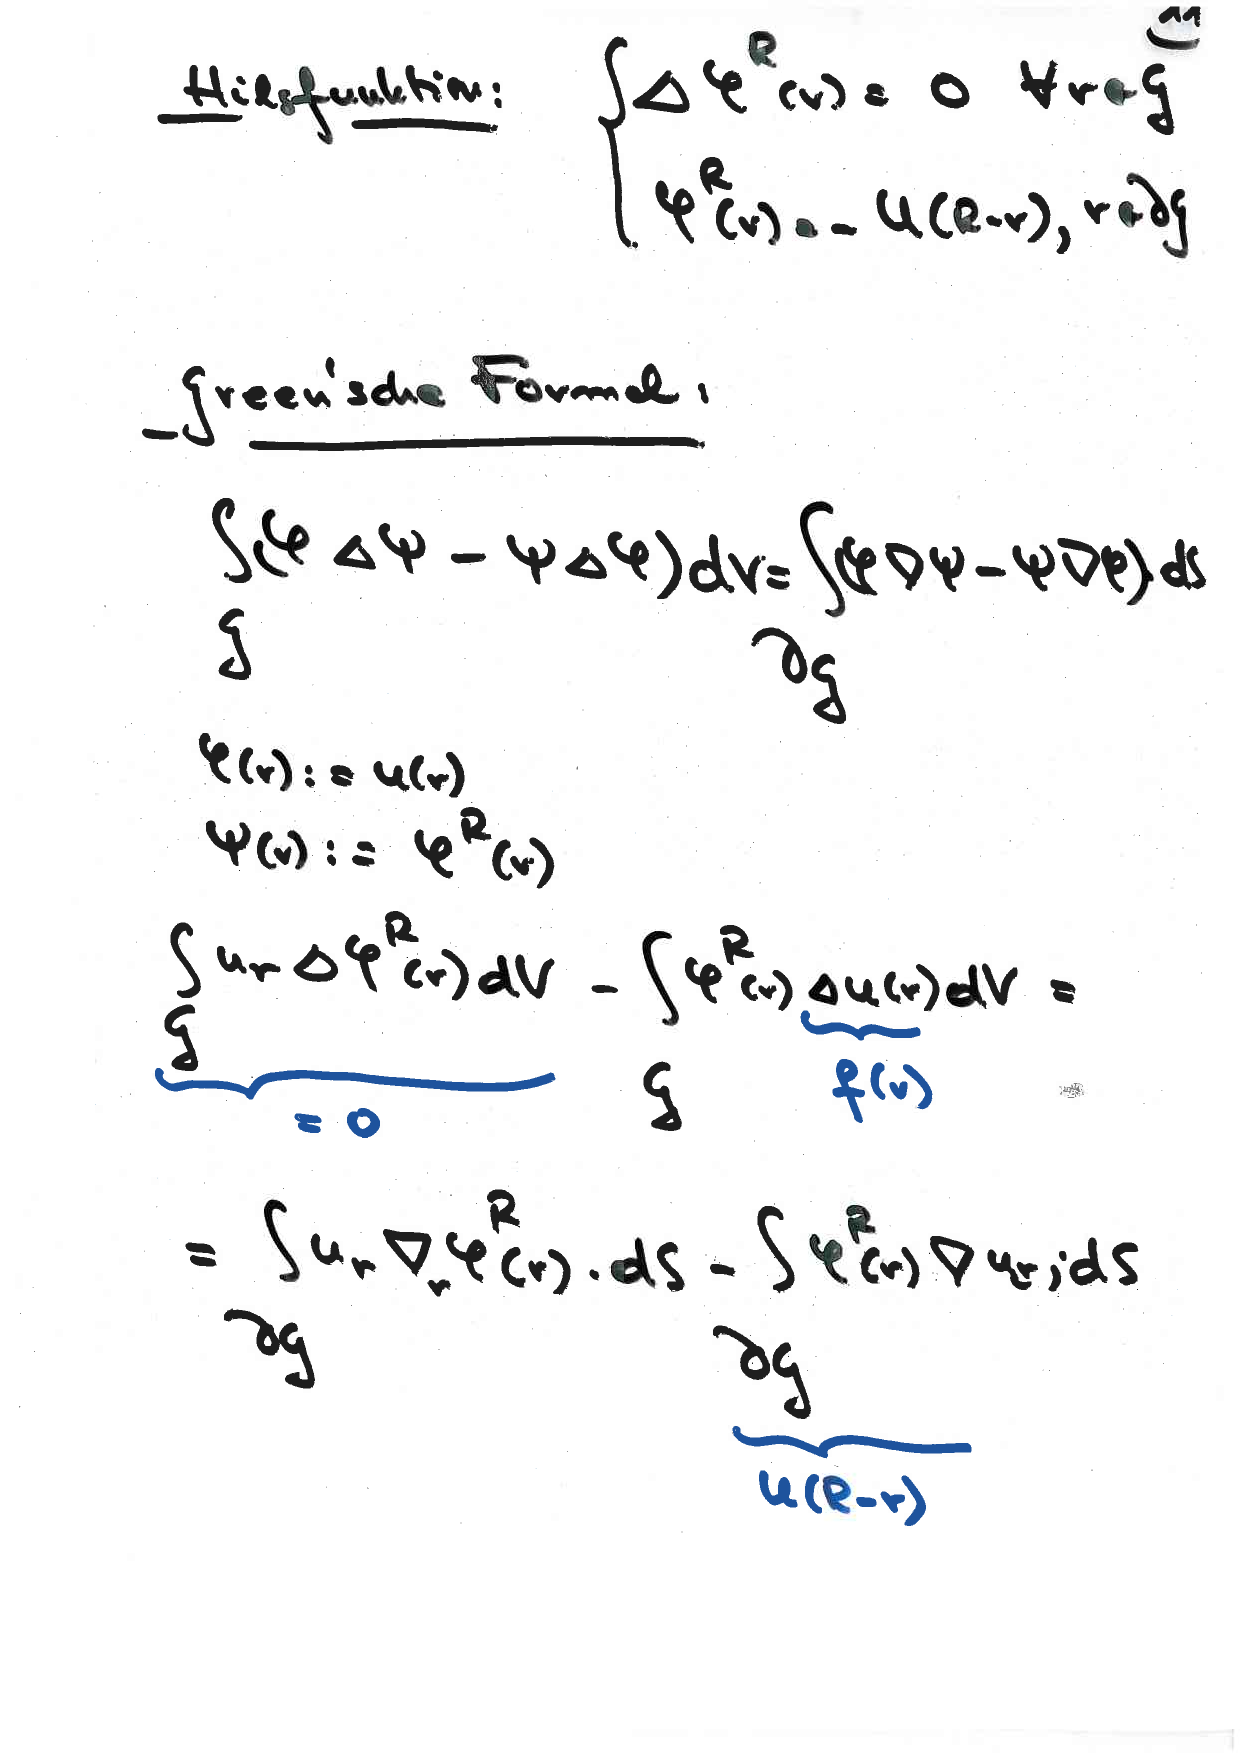 11
Hilfsfunktion: { Δφ^R(r) = 0 ∀ r∈G
φ^R(r) = - U(R-r), r∈∂G
Green'sche Formel:
∫_G (φ Δψ - ψ Δφ) dV = ∫_∂G (φ∇ψ - ψ∇φ)·dS
φ(r) := u(r)
ψ(r) := φ^R(r)
∫_G u_r Δφ^R(r) dV - ∫_G φ^R(r) Δu(r) dV =
= 0 f(r)
= ∫_∂G u_r ∇_r φ^R(r) · dS - ∫_∂G φ^R(r) ∇ u_r; dS
U(R-r)